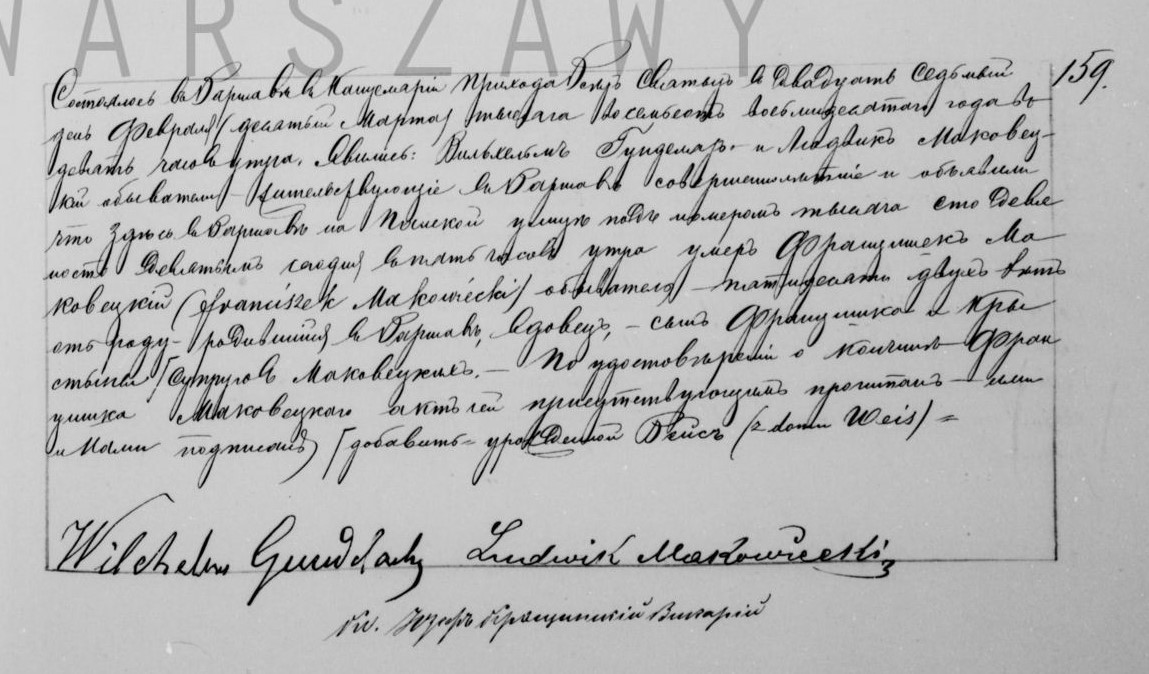 WARSZAWY
159.
Состоялось в Варшаве в Канцеляріи Прихода Всѣхъ Святыхъ в двадцать седьмый
день Февраля (десятый Марта) тысяча восемьсотъ восьмидесятаго года въ
девять часовъ утра. Явились: Вильхельмъ Гунделахъ и Людвикъ Маковец-
кій обыватели жительствующіе в Варшавѣ совершеннолѣтніе и объявили
что здѣсь в Варшавѣ на улицѣ подъ номеромъ тысяча сто девя
носто девятымъ сегодня в пять часовъ утра умеръ Францишекъ Ма
ковецкій (Franciszek Makowiecki) обыватель пятидесяти двухъ лѣтъ
отъ роду родившійся в Варшавѣ, вдовецъ, – сынъ Францишка и Кры
стыны супруговъ Маковецкихъ. – По удостовѣреніи о кончинѣ Фран
цишка Маковецкаго актъ сей присутствующимъ прочитанъ ими
и Нами подписанъ (добавить = урожденной Вейсъ (z domu Weis) =
Wilchelm Gundelach Ludwik Makowiecki
Кс. Викарій